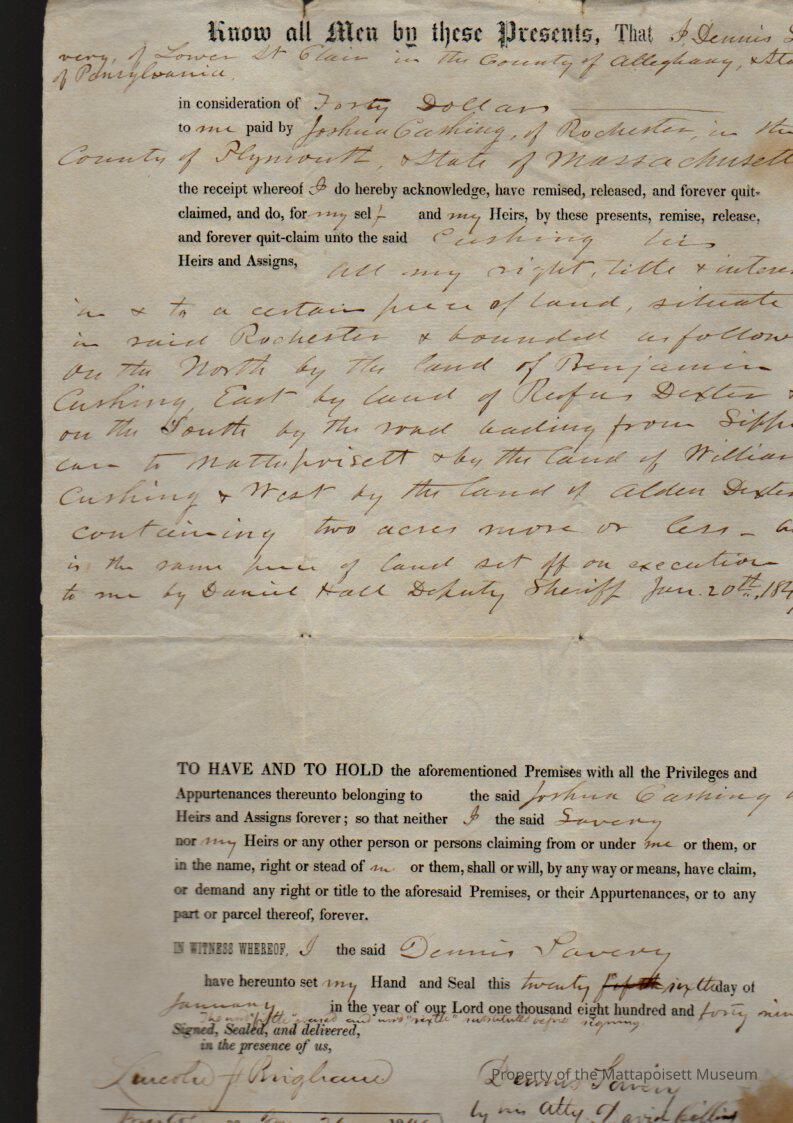 Know all Men by these Presents, That I, Dennis
very, of Lower St Clair in the County of Alleghany, & Sta
of Pensylvania.
in consideration of Forty Dollars
to me paid by Joshua Cushing, of Rochester, in the
County of Plymouth, & State of Massachusett
the receipt whereof I do hereby acknowledge, have remised, released, and forever quit-
claimed, and do, for my self and my Heirs, by these presents, remise, release,
and forever quit-claim unto the said Cushing his
Heirs and Assigns, all my right, title & interes
in & to a certain piece of land, situate
in said Rochester & bounded as follow
on the North by the land of Benjamin
Cushing East by land of Rufus Dexter &
on the South by the road leading from Sipp
can to Mattapoisett & by the land of William
Cushing & West by the land of Alden Dexter
containing two acres more or less -
is the same piece of land set off on execution
to me by Daniel Hall Deputy Sheriff Jan. 20th, 184
TO HAVE AND TO HOLD the aforementioned Premises with all the Privileges and
Appurtenances thereunto belonging to the said Joshua Cushing
Heirs and Assigns forever; so that neither I the said Savery
nor my Heirs or any other person or persons claiming from or under me or them, or
in the name, right or stead of me or them, shall or will, by any way or means, have claim,
or demand any right or title to the aforesaid Premises, or their Appurtenances, or to any
part or parcel thereof, forever.
IN WITNESS WHEREOF, I the said Dennis Savery
have hereunto set my Hand and Seal this twenty fifth sixth day of
January in the year of our Lord one thousand eight hundred and forty nin
The word "fifth" erased and word "sixth" substituted before signing.
Signed, Sealed, and delivered,
in the presence of us,
Lincoln F Brigham
Dennis Savery
by his Atty.
Property of the Mattapoisett Museum